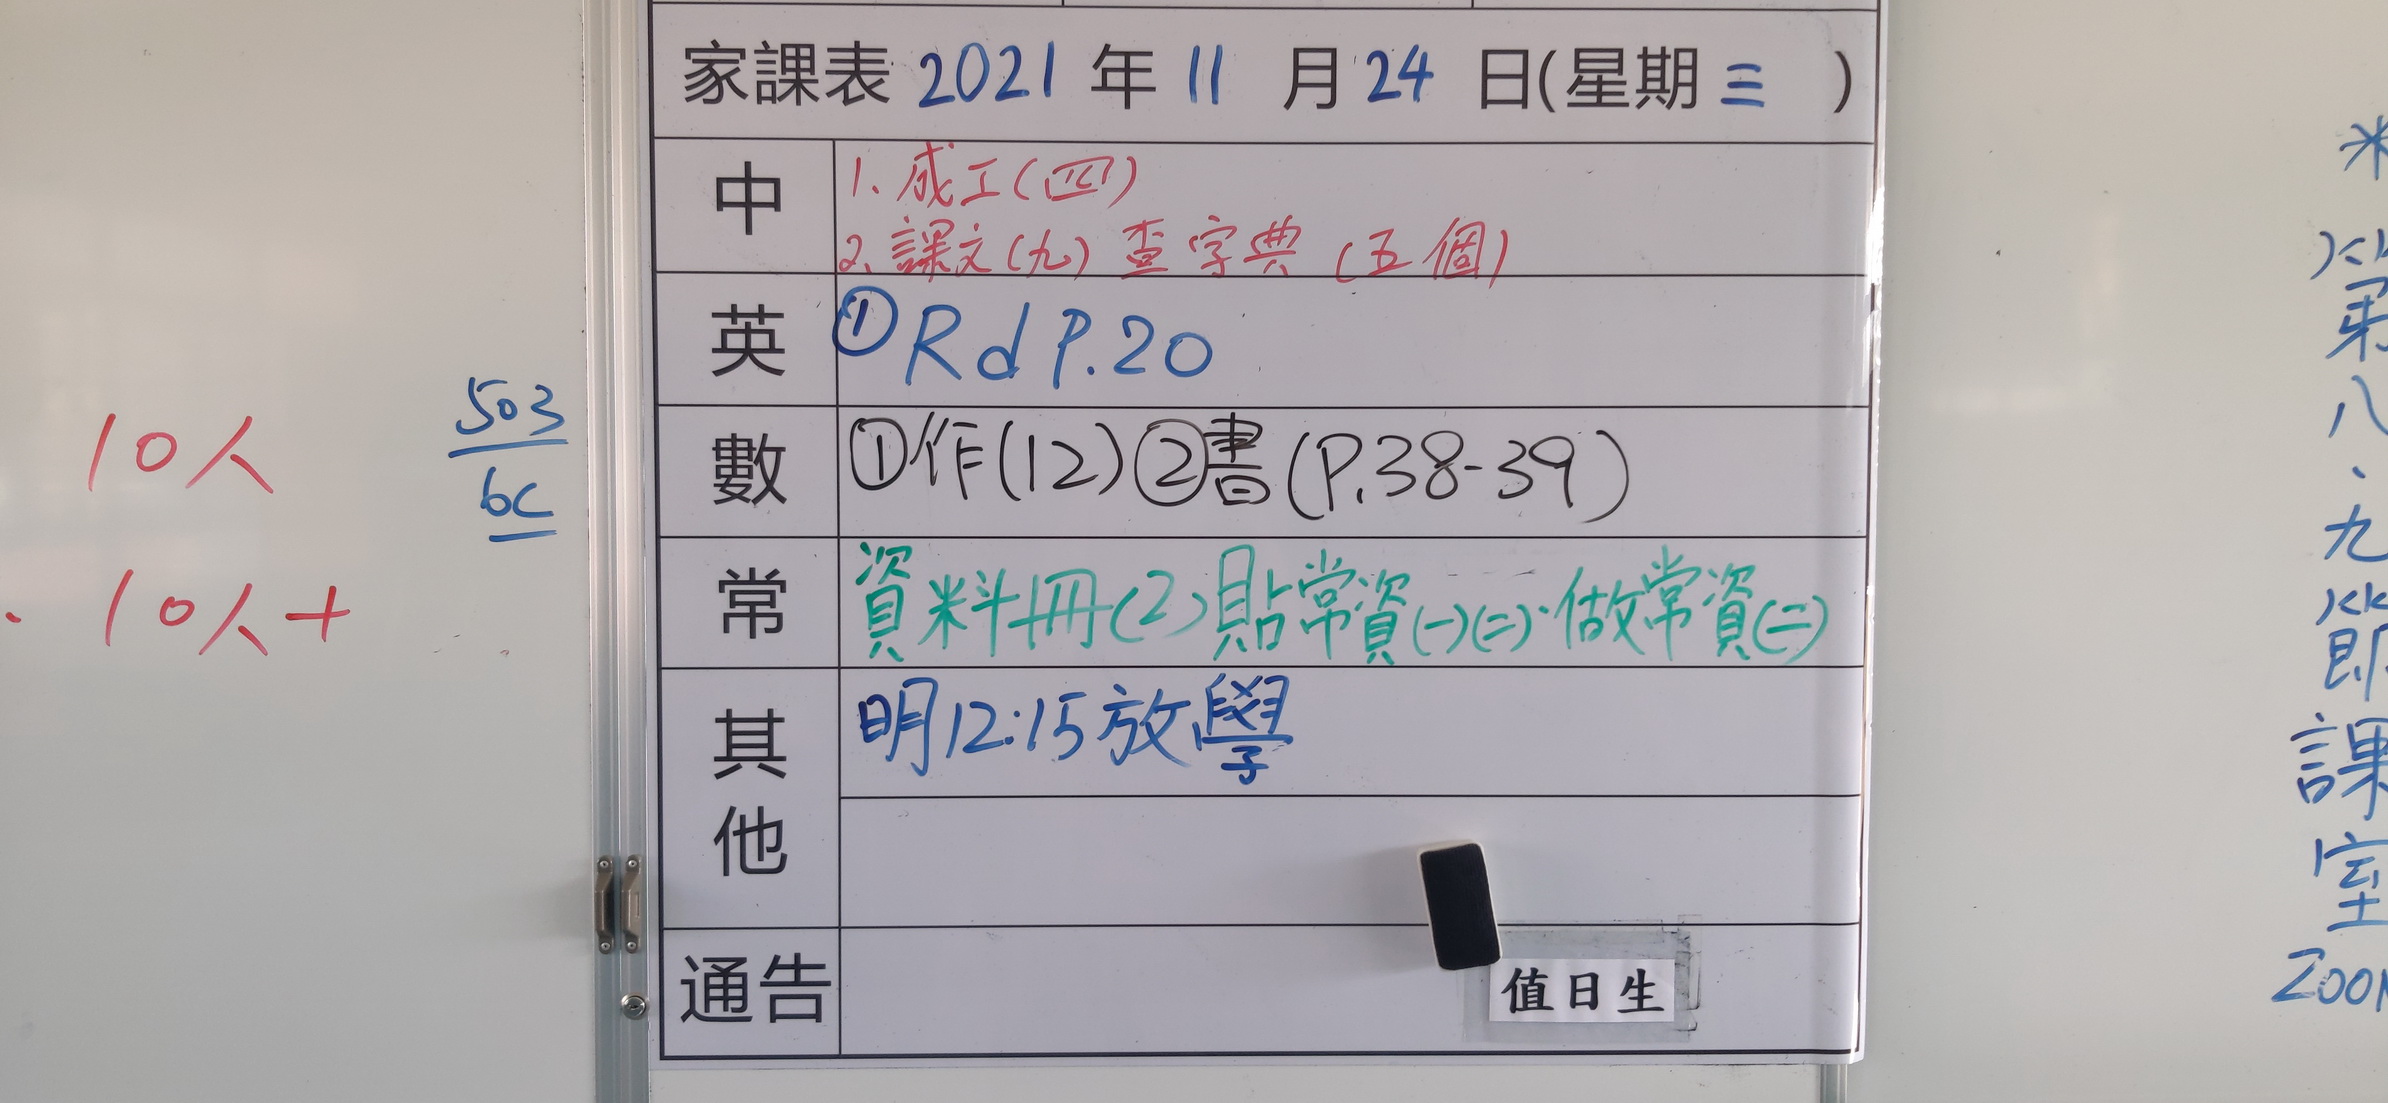 家課表 2021 年 11 月 24 日(星期三 )
中
1. 成工(四)
2. 課文(九) 查字典 (五個)
英
① Rd P.20
數
①作(12)②書(P.38-39)
常
資料冊(2)貼常資(一)(二)·做常資(二)
其他
明12:15放學
通告
值日生
10人
10人+
503
6C
第八、九節課室